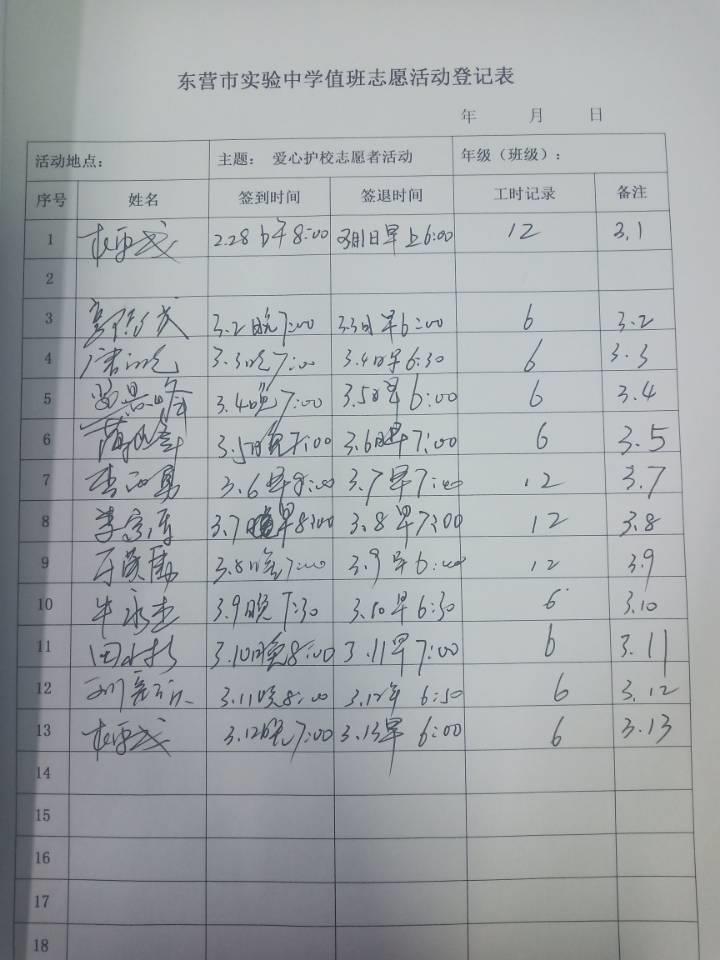 东营市实验中学值班志愿活动登记表
年 月 日
活动地点: 主题: 爱心护校志愿者活动 年级(班级):
序号 姓名 签到时间 签退时间 工时记录 备注
1 2.28 8:00 3月1日早上6:00 12 3.1
2
3 3.2晚7:00 3.3日早6:00 6 3.2
4 3.3晚7:00 3.4日早6:30 6 3.3
5 3.4晚7:00 3.5日早6:00 6 3.4
6 3.5日晚7:00 3.6日早7:00 6 3.5
7 3.6早8:00 3.7早7:00 12 3.7
8 3.7早8:00 3.8早7:00 12 3.8
9 3.8晚7:00 3.9早6:00 12 3.9
10 牛永杰 3.9晚7:30 3.10早6:30 6 3.10
11 3.10晚8:00 3.11早7:00 6 3.11
12 3.11晚8:00 3.12早6:50 6 3.12
13 3.12晚7:00 3.13早6:00 6 3.13
14
15
16
17
18